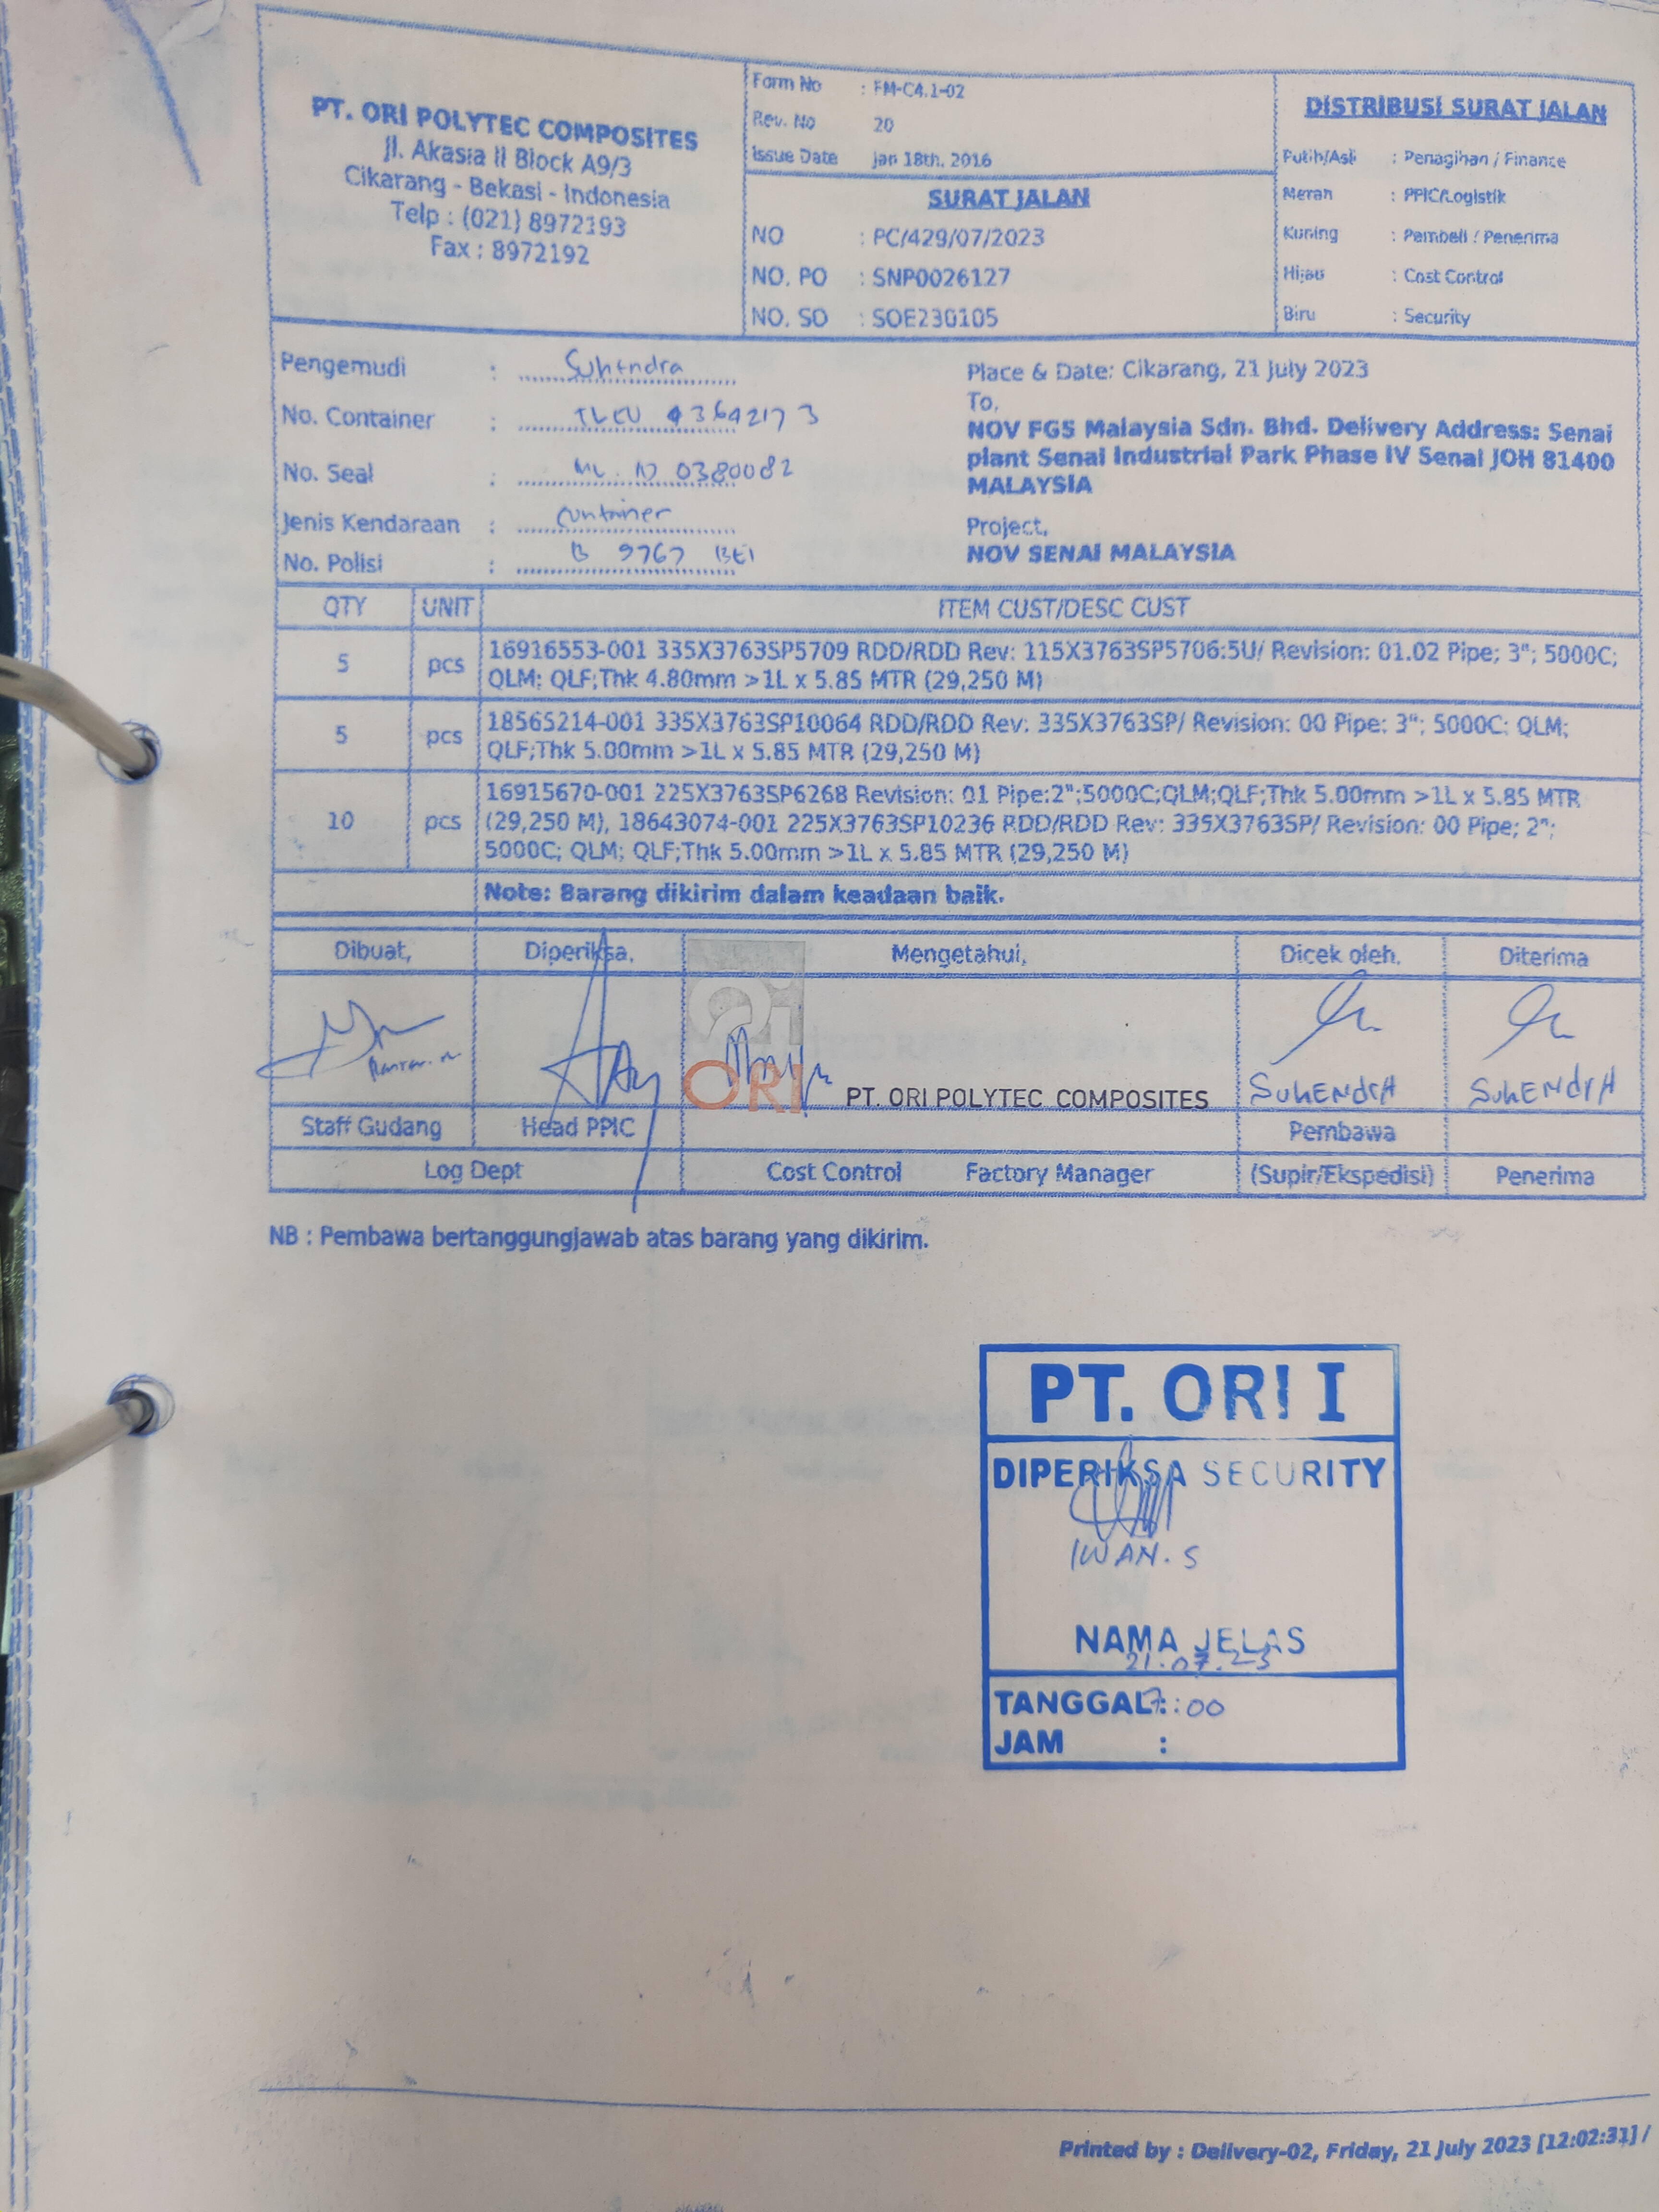 PT. ORI POLYTEC COMPOSITES
Jl. Akasia II Block A9/3
Cikarang - Bekasi - Indonesia
Telp : (021) 8972193
Fax : 8972192
Form No : FM-C4.1-02
Rev. No 20
Issue Date Jan 18th. 2016
SURAT JALAN
NO : PC/429/07/2023
NO. PO : SNP0026127
NO. SO : SOE230105
DISTRIBUSI SURAT JALAN
Putih/Asli : Penagihan / Finance
Merah : PPIC/Logistik
Kuning : Pembeli / Penerima
Hijau : Cost Control
Biru : Security
Pengemudi : Suhendra
No. Container : TLEU
No. Seal : 0380082
Jenis Kendaraan : Container
No. Polisi : B 9767 BEI
Place & Date: Cikarang, 21 July 2023
To,
NOV FGS Malaysia Sdn. Bhd. Delivery Address: Senai
plant Senai Industrial Park Phase IV Senai JOH 81400
MALAYSIA
Project,
NOV SENAI MALAYSIA
QTY UNIT ITEM CUST/DESC CUST
5 pcs 16916553-001 335X3763SP5709 RDD/RDD Rev: 115X3763SP5706:5U/ Revision: 01.02 Pipe; 3"; 5000C;
QLM; QLF;Thk 4.80mm >1L x 5.85 MTR (29,250 M)
5 pcs 18565214-001 335X3763SP10064 RDD/RDD Rev: 335X3763SP/ Revision: 00 Pipe: 3"; 5000C; QLM;
QLF;Thk 5.00mm >1L x 5.85 MTR (29,250 M)
10 pcs 16915670-001 225X3763SP6268 Revision: 01 Pipe:2";5000C;QLM;QLF;Thk 5.00mm >1L x 5.85 MTR
(29,250 M), 18643074-001 225X3763SP10236 RDD/RDD Rev: 335X3763SP/ Revision: 00 Pipe; 2";
5000C; QLM; QLF;Thk 5.00mm >1L x 5.85 MTR (29,250 M)
Note: Barang dikirim dalam keadaan baik.
Dibuat, Diperiksa, Mengetahui, Dicek oleh, Diterima
ORI PT. ORI POLYTEC COMPOSITES
SuhENdrA SuhENdrA
Staff Gudang Head PPIC Pembawa
Log Dept Cost Control Factory Manager (Supir/Ekspedisi) Penerima
NB : Pembawa bertanggungjawab atas barang yang dikirim.
PT. ORI I
DIPERIKSA SECURITY
IWAN.S
NAMA JELAS
21.07.23
TANGGAL: :00
JAM :
Printed by : Delivery-02, Friday, 21 July 2023 [12:02:31] /